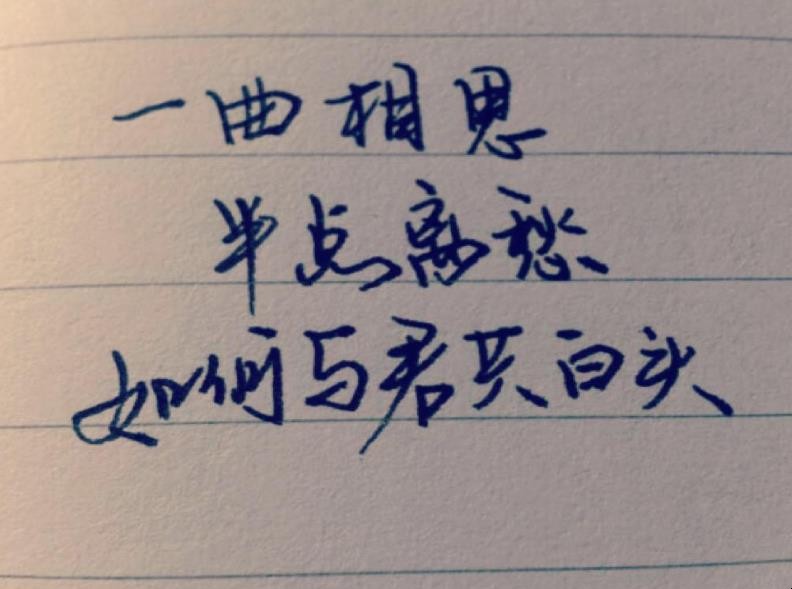 一曲相思
半点离愁
如何与君共白头